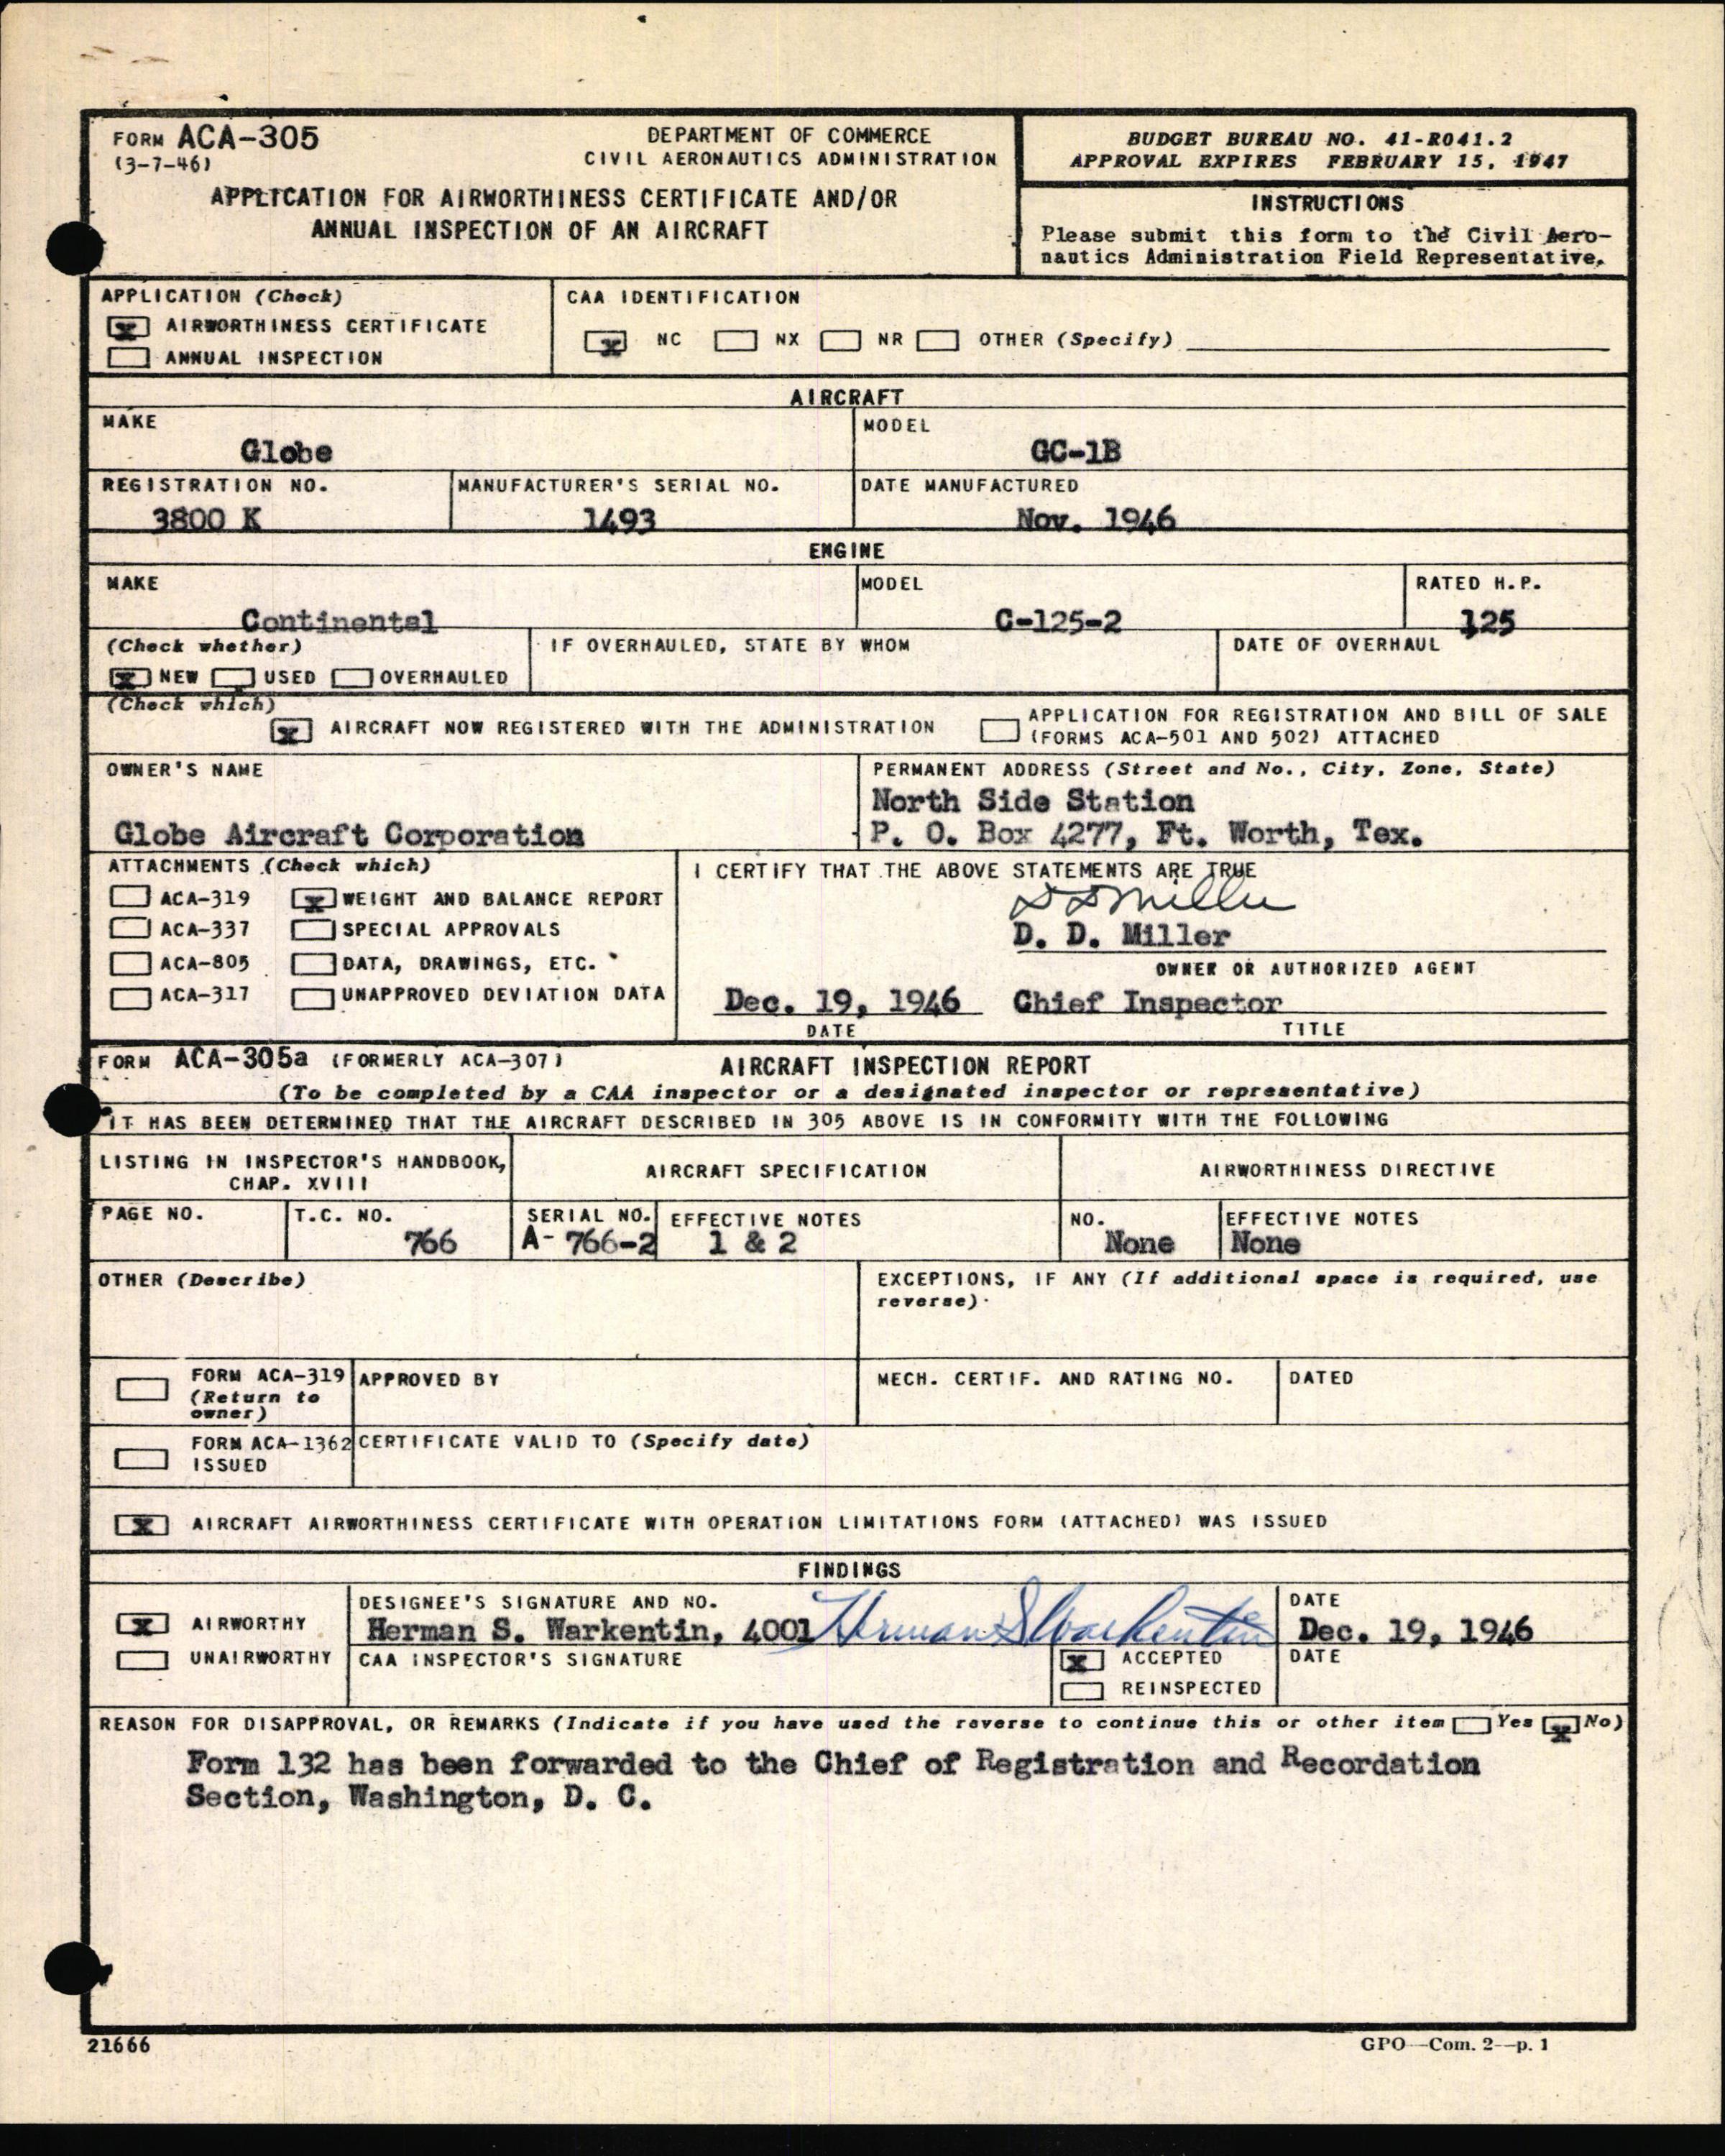 FORM ACA-305
(3-7-46)
DEPARTMENT OF COMMERCE
CIVIL AERONAUTICS ADMINISTRATION
APPLICATION FOR AIRWORTHINESS CERTIFICATE AND/OR
ANNUAL INSPECTION OF AN AIRCRAFT
BUDGET BUREAU NO. 41-R041.2
APPROVAL EXPIRES FEBRUARY 15, 1947
INSTRUCTIONS
Please submit this form to the Civil Aero-
nautics Administration Field Representative.
APPLICATION (Check)
x AIRWORTHINESS CERTIFICATE
ANNUAL INSPECTION
CAA IDENTIFICATION
x NC NX NR OTHER (Specify)
AIRCRAFT
MAKE
Globe
MODEL
GC-1B
REGISTRATION NO.
3800 K
MANUFACTURER'S SERIAL NO.
1493
DATE MANUFACTURED
Nov. 1946
ENGINE
MAKE
Continental
MODEL
C-125-2
RATED H.P.
125
(Check whether)
x NEW USED OVERHAULED
IF OVERHAULED, STATE BY WHOM
DATE OF OVERHAUL
(Check which)
x AIRCRAFT NOW REGISTERED WITH THE ADMINISTRATION
APPLICATION FOR REGISTRATION AND BILL OF SALE
(FORMS ACA-501 AND 502) ATTACHED
OWNER'S NAME
Globe Aircraft Corporation
PERMANENT ADDRESS (Street and No., City, Zone, State)
North Side Station
P. O. Box 4277, Ft. Worth, Tex.
ATTACHMENTS (Check which)
ACA-319 x WEIGHT AND BALANCE REPORT
ACA-337 SPECIAL APPROVALS
ACA-805 DATA, DRAWINGS, ETC.
ACA-317 UNAPPROVED DEVIATION DATA
I CERTIFY THAT THE ABOVE STATEMENTS ARE TRUE
D D Miller
D. D. Miller
OWNER OR AUTHORIZED AGENT
Dec. 19, 1946 Chief Inspector
DATE TITLE
FORM ACA-305a (FORMERLY ACA-307) AIRCRAFT INSPECTION REPORT
(To be completed by a CAA inspector or a designated inspector or representative)
IT HAS BEEN DETERMINED THAT THE AIRCRAFT DESCRIBED IN 305 ABOVE IS IN CONFORMITY WITH THE FOLLOWING
LISTING IN INSPECTOR'S HANDBOOK,
CHAP. XVIII
AIRCRAFT SPECIFICATION
AIRWORTHINESS DIRECTIVE
PAGE NO.
T.C. NO.
766
SERIAL NO.
A- 766-2
EFFECTIVE NOTES
1 & 2
NO.
None
EFFECTIVE NOTES
None
OTHER (Describe)
EXCEPTIONS, IF ANY (If additional space is required, use
reverse)
FORM ACA-319
(Return to
owner)
APPROVED BY
MECH. CERTIF. AND RATING NO.
DATED
FORM ACA-1362
ISSUED
CERTIFICATE VALID TO (Specify date)
x AIRCRAFT AIRWORTHINESS CERTIFICATE WITH OPERATION LIMITATIONS FORM (ATTACHED) WAS ISSUED
FINDINGS
x AIRWORTHY
UNAIRWORTHY
DESIGNEE'S SIGNATURE AND NO.
Herman S. Warkentin, 4001 Herman S Warkentin
DATE
Dec. 19, 1946
CAA INSPECTOR'S SIGNATURE
x ACCEPTED
REINSPECTED
DATE
REASON FOR DISAPPROVAL, OR REMARKS (Indicate if you have used the reverse to continue this or other item Yes x No)
Form 132 has been forwarded to the Chief of Registration and Recordation
Section, Washington, D. C.
21666
GPO—Com. 2—p. 1